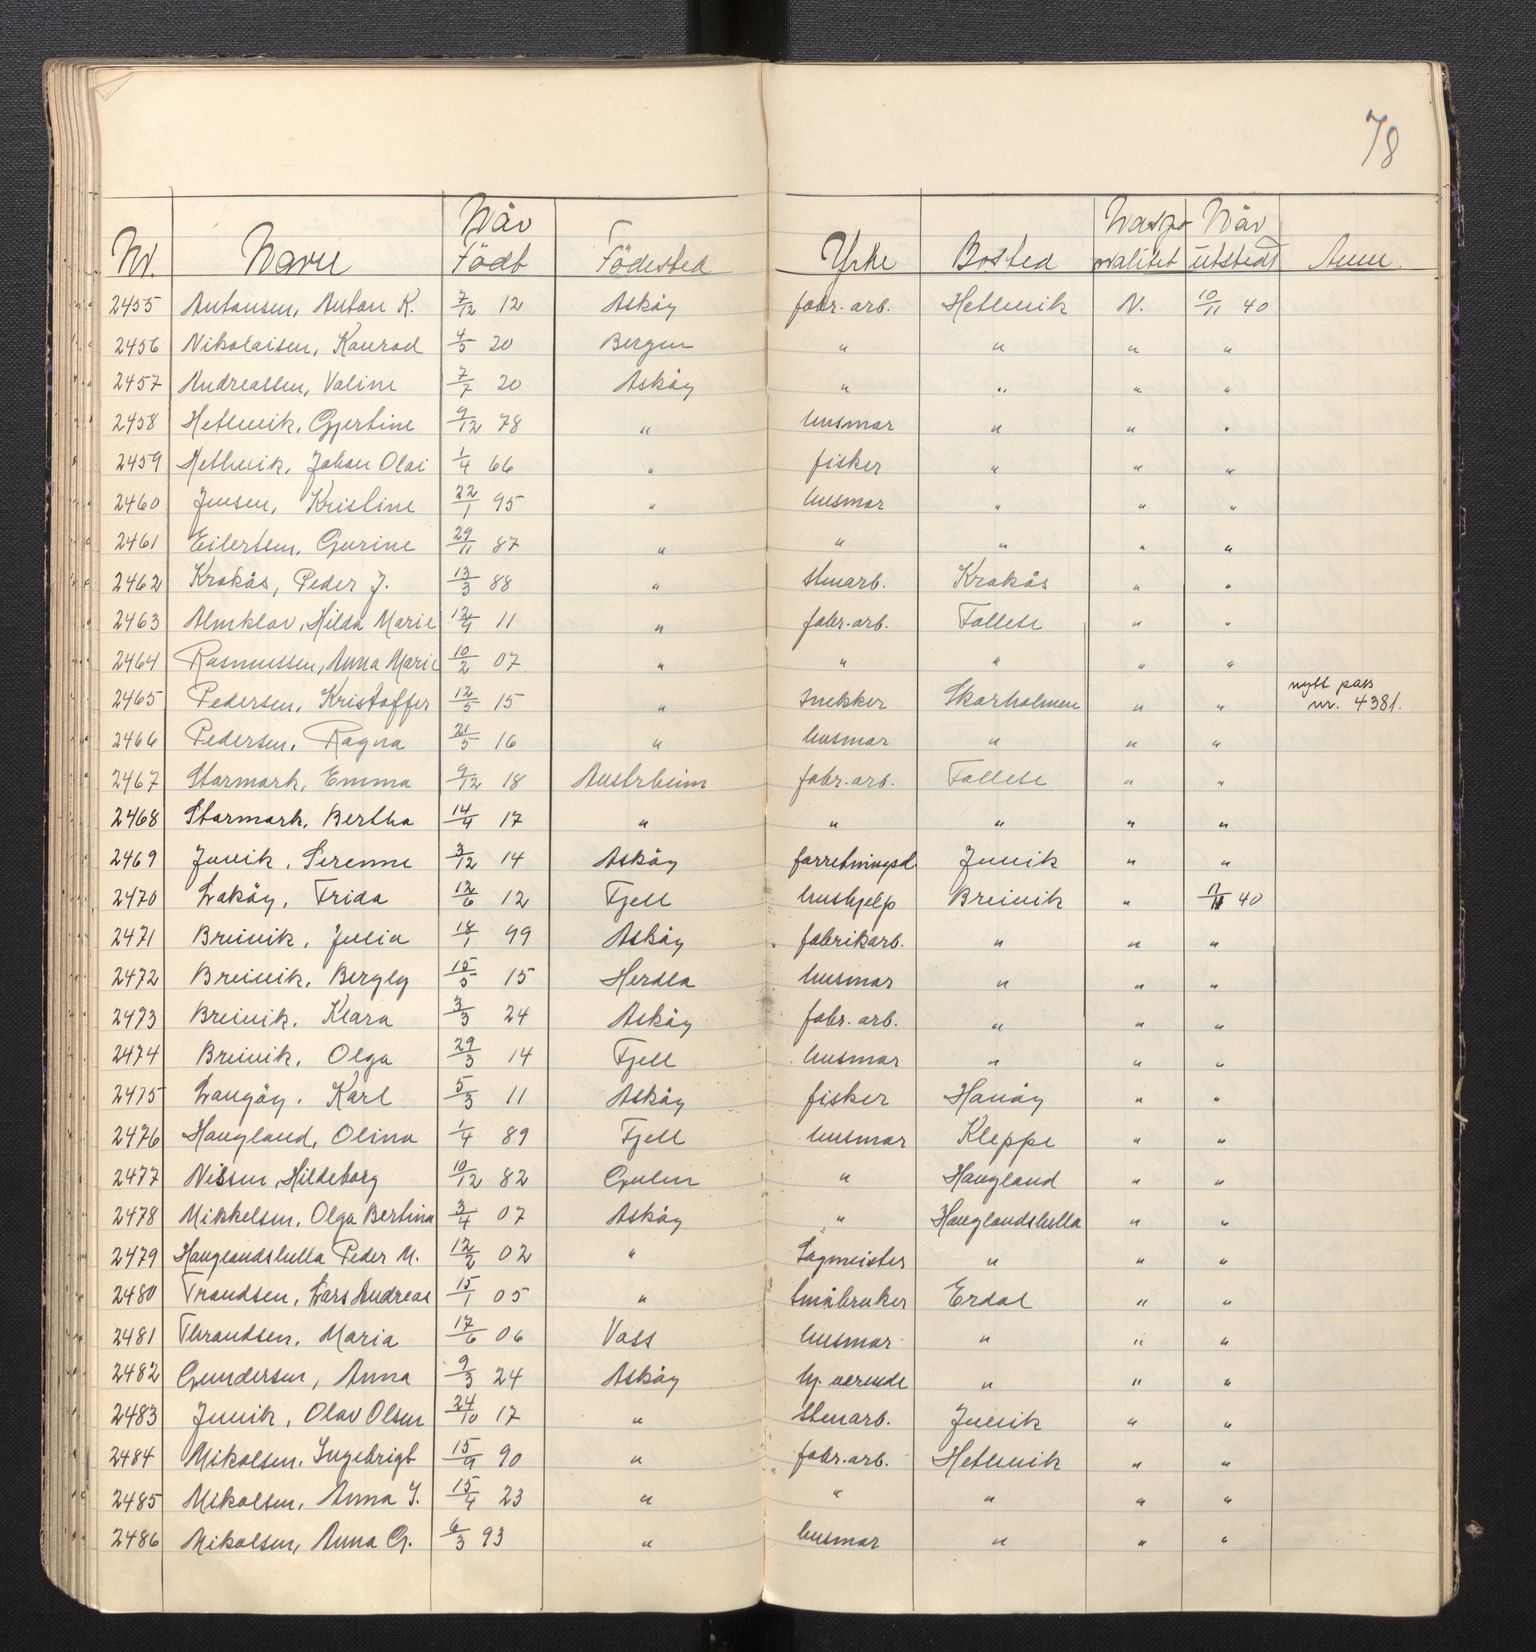 78
Nr. Navn Når Födt Födested Yrke Bosted Nasjonalitet Når utstedt Anm.
2455 Antonsen, Anton K. 7/12 12 Asköy fabr. arb. Hetlevik N. 10/11 40
2456 Nikolaisen, Konrad 4/5 20 Bergen " " " "
2457 Andreassen, Valine 7/7 20 Asköy " " " "
2458 Hetlevik, Gjertine 9/12 78 " husmor " " "
2459 Hetlevik, Johan Olai 1/4 66 " fisker " " "
2460 Jensen, Kristine 22/1 95 " husmor " " "
2461 Eilertsen, Gurine 29/11 87 " " " " "
2462 Krokås, Peder J. 13/3 88 " stenarb. Krokås " "
2463 Almklov, Hilda Marie 12/9 11 " fabr. arb. Follese " "
2464 Rasmussen, Anna Marie 10/2 07 " " " " "
2465 Pedersen, Kristoffer 12/5 15 " snekker Skarholmen " " nytt pass nr. 4381.
2466 Pedersen, Ragna 21/5 16 " husmor " " "
2467 Starmark, Emma 9/12 18 Austrheim fabr. arb. Follese " "
2468 Starmark, Bertha 14/9 17 " " " " "
2469 Juvik, Serenne 3/12 14 Asköy forretningsd. Juvik " "
2470 Laköy, Frida 12/6 12 Fjell hushjelp Breivik " 11/11 40
2471 Breivik, Julia 18/1 99 Asköy fabrikarb. " " "
2472 Breivik, Bergly 15/5 15 Herdla husmor " " "
2473 Breivik, Klara 3/3 24 Asköy fabr. arb. " " "
2474 Breivik, Olga 29/3 14 Fjell husmor " " "
2475 Langöy, Karl 5/3 11 Asköy fisker Hanöy " "
2476 Haugland, Olina 1/4 89 Fjell husmor Kleppe " "
2477 Nissen, Hildeborg 10/12 82 Gulen " Haugland " "
2478 Mikkelsen, Olga Bertina 3/4 07 Asköy " Hauglandshella " "
2479 Hauglandshella Peder M. 12/2 02 " Sagmeister " " "
2480 Trondsen, Lars Andreas 15/1 05 " småbruker Erdal " "
2481 Thrandsen, Maria 17/6 06 Voss husmor " " "
2482 Gundersen, Anna 9/3 24 Asköy hj. værende " " "
2483 Juvik, Olav Olsen 24/10 17 " stenarb. Juvik " "
2484 Mikalsen, Ingebrigt 15/9 90 " fabr. arb. Hetlevik " "
2485 Mikalsen, Anna I. 15/4 23 " " " " "
2486 Mikalsen, Anna G. 6/3 93 " husmor " " "